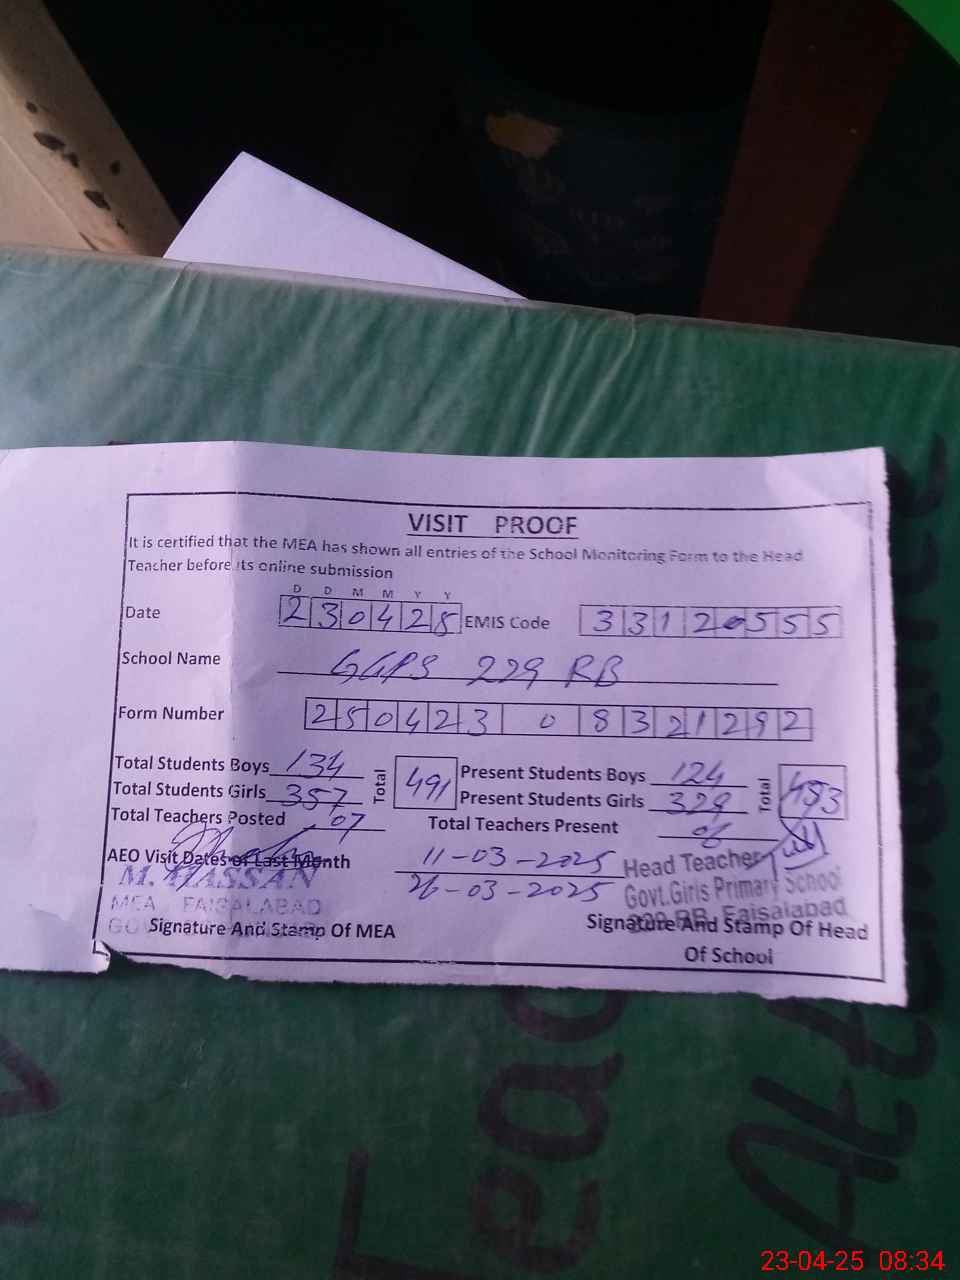 VISIT PROOF
It is certified that the MEA has shown all entries of the School Monitoring Form to the Head
Teacher before its online submission
D D M M Y Y
Date 230425 EMIS Code 33120555
School Name GGPS 229 RB
Form Number 250423 0 8321292
Total Students Boys 134 Total 491 Present Students Boys 124 Total 453
Total Students Girls 357 Present Students Girls 329
Total Teachers Posted 07 Total Teachers Present 06
AEO Visit Dates of Last Month 11-03-2025
26-03-2025
M. HASSAN
MEA FAISALABAD
Signature And Stamp Of MEA
Head Teacher
Govt.Girls Primary School
229 RB Faisalabad
Signature And Stamp Of Head
Of School
Tea
Atten
23-04-25 08:34